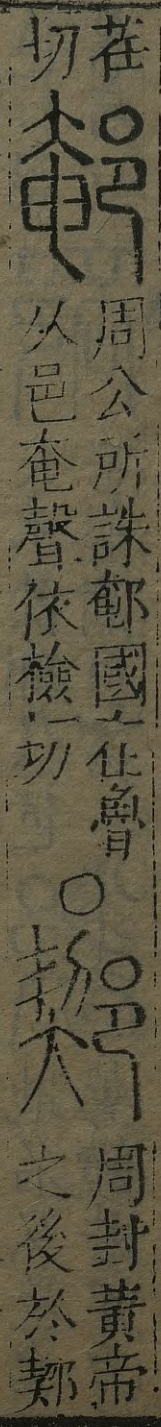 茬
切
䣍
周公所誅䣍國在魯
从邑奄聲依檢切
○
周封黃帝
之後於